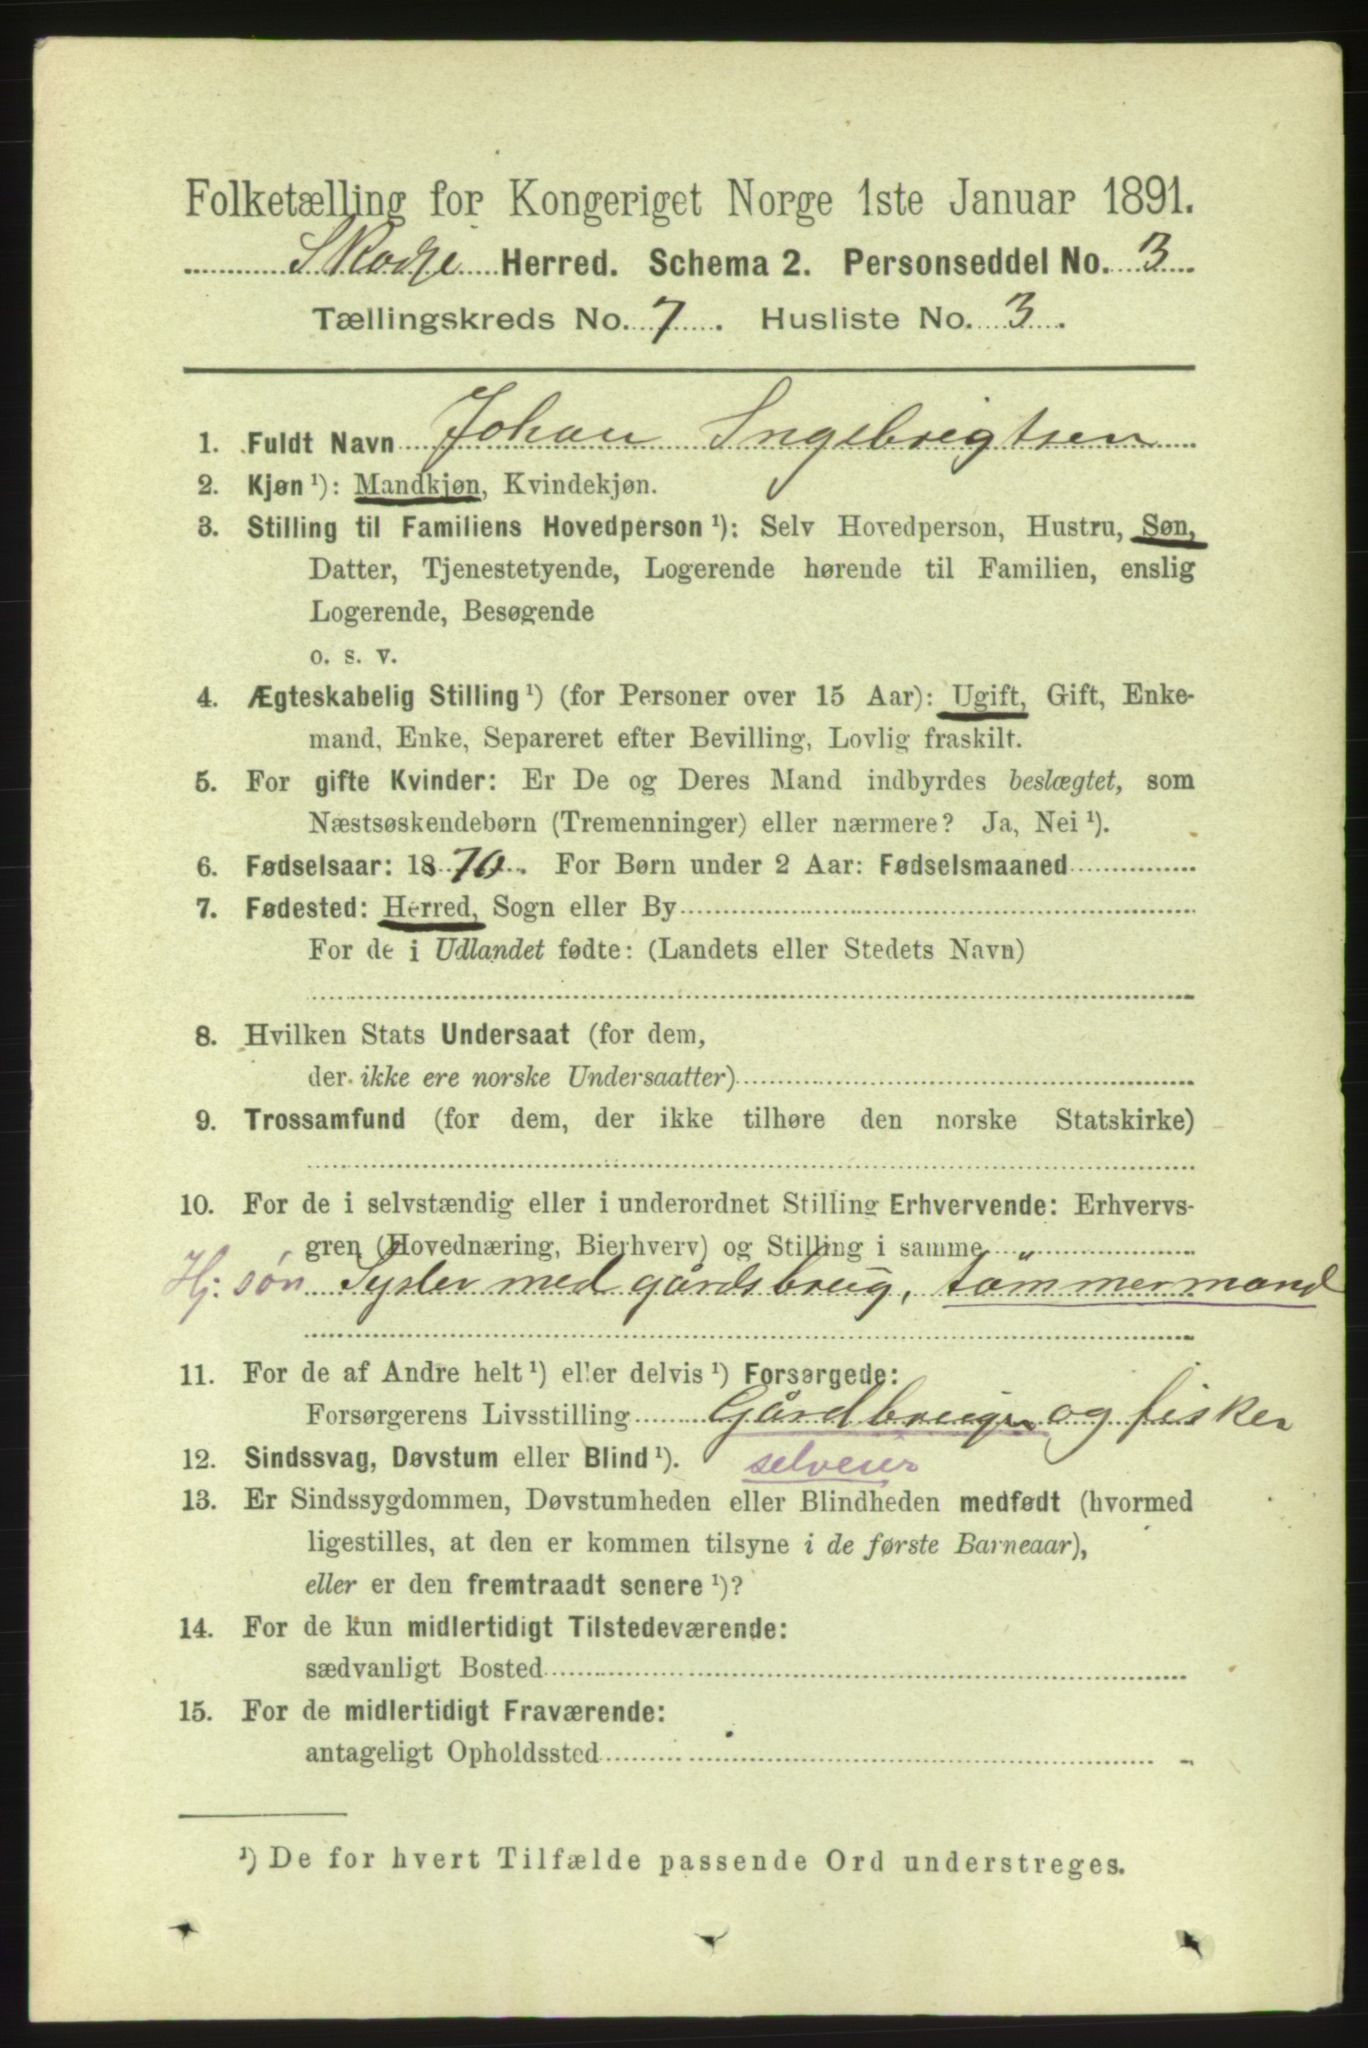 Folketælling for Kongeriget Norge 1ste Januar 1891.
Skodje Herred. Schema 2. Personseddel No. 3
Tællingskreds No. 7. Husliste No. 3.
1. Fuldt Navn Johan Ingebrigtsen
2. Kjøn ¹): Mandkjøn, Kvindekjøn.
3. Stilling til Familiens Hovedperson ¹): Selv Hovedperson, Hustru, Søn,
Datter, Tjenestetyende, Logerende hørende til Familien, enslig
Logerende, Besøgende
o. s. v.
4. Ægteskabelig Stilling ¹) (for Personer over 15 Aar): Ugift, Gift, Enke-
mand, Enke, Separeret efter Bevilling, Lovlig fraskilt.
5. For gifte Kvinder: Er De og Deres Mand indbyrdes beslægtet, som
Næstsøskendebørn (Tremenninger) eller nærmere? Ja, Nei ¹).
6. Fødselsaar: 1870. For Børn under 2 Aar: Fødselsmaaned
7. Fødested: Herred, Sogn eller By
For de i Udlandet fødte: (Landets eller Stedets Navn)
8. Hvilken Stats Undersaat (for dem,
der ikke ere norske Undersaatter)
9. Trossamfund (for dem, der ikke tilhøre den norske Statskirke)
10. For de i selvstændig eller i underordnet Stilling Erhvervende: Erhvervs-
gren (Hovednæring, Bierhverv) og Stilling i samme
Hj. søn Sysler med gårdsbrug, tømmermand
11. For de af Andre helt ¹) eller delvis ¹) Forsørgede:
Forsørgerens Livsstilling Gårdbruger og fisker
12. Sindssvag, Døvstum eller Blind ¹). selveier
13. Er Sindssygdommen, Døvstumheden eller Blindheden medfødt (hvormed
ligestilles, at den er kommen tilsyne i de første Barneaar),
eller er den fremtraadt senere ¹)?
14. For de kun midlertidigt Tilstedeværende:
sædvanligt Bosted
15. For de midlertidigt Fraværende:
antageligt Opholdssted
¹) De for hvert Tilfælde passende Ord understreges.